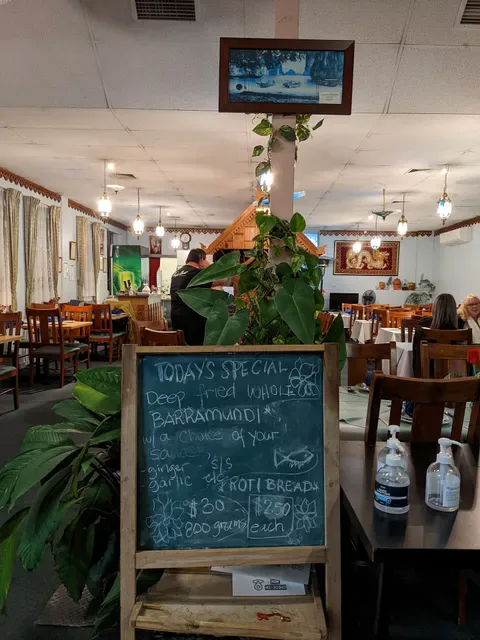 TODAY'S SPECIAL
Deep fried WHOLE
BARRAMUNDI*
w/ a choice of your
sauce
- ginger
garlic
$30
800 gram
ROTI BREAD*
$2.50
each